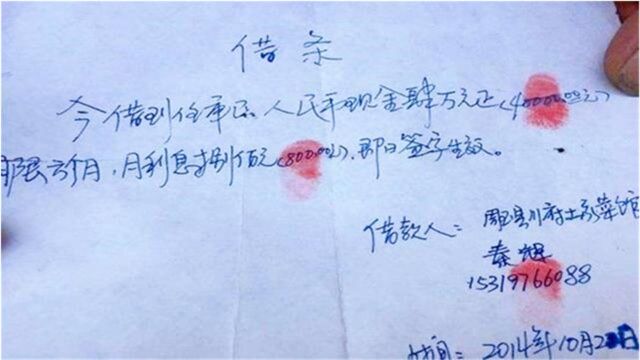 借条
今借到任军 人民币现金肆万元正(40000.00元)
限 个月,月利息捌佰元(800.00元).即日签字生效。
借款人: 川府土家菜馆
秦
15319766088
时间:2014年10月2 日